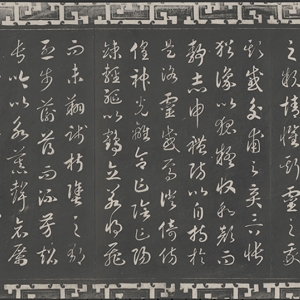 之款實懼斯靈之我
欺感交甫之棄言悵
猶豫以狐疑收和顏而
靜志申禮防以自持於
是洛靈感焉徙倚彷
徨神光離合乍陰乍陽
竦輕軀以鶴立若將飛
而未翔踐椒塗之郁
烈步蘅薄而流芳超
長吟以永慕聲哀厲